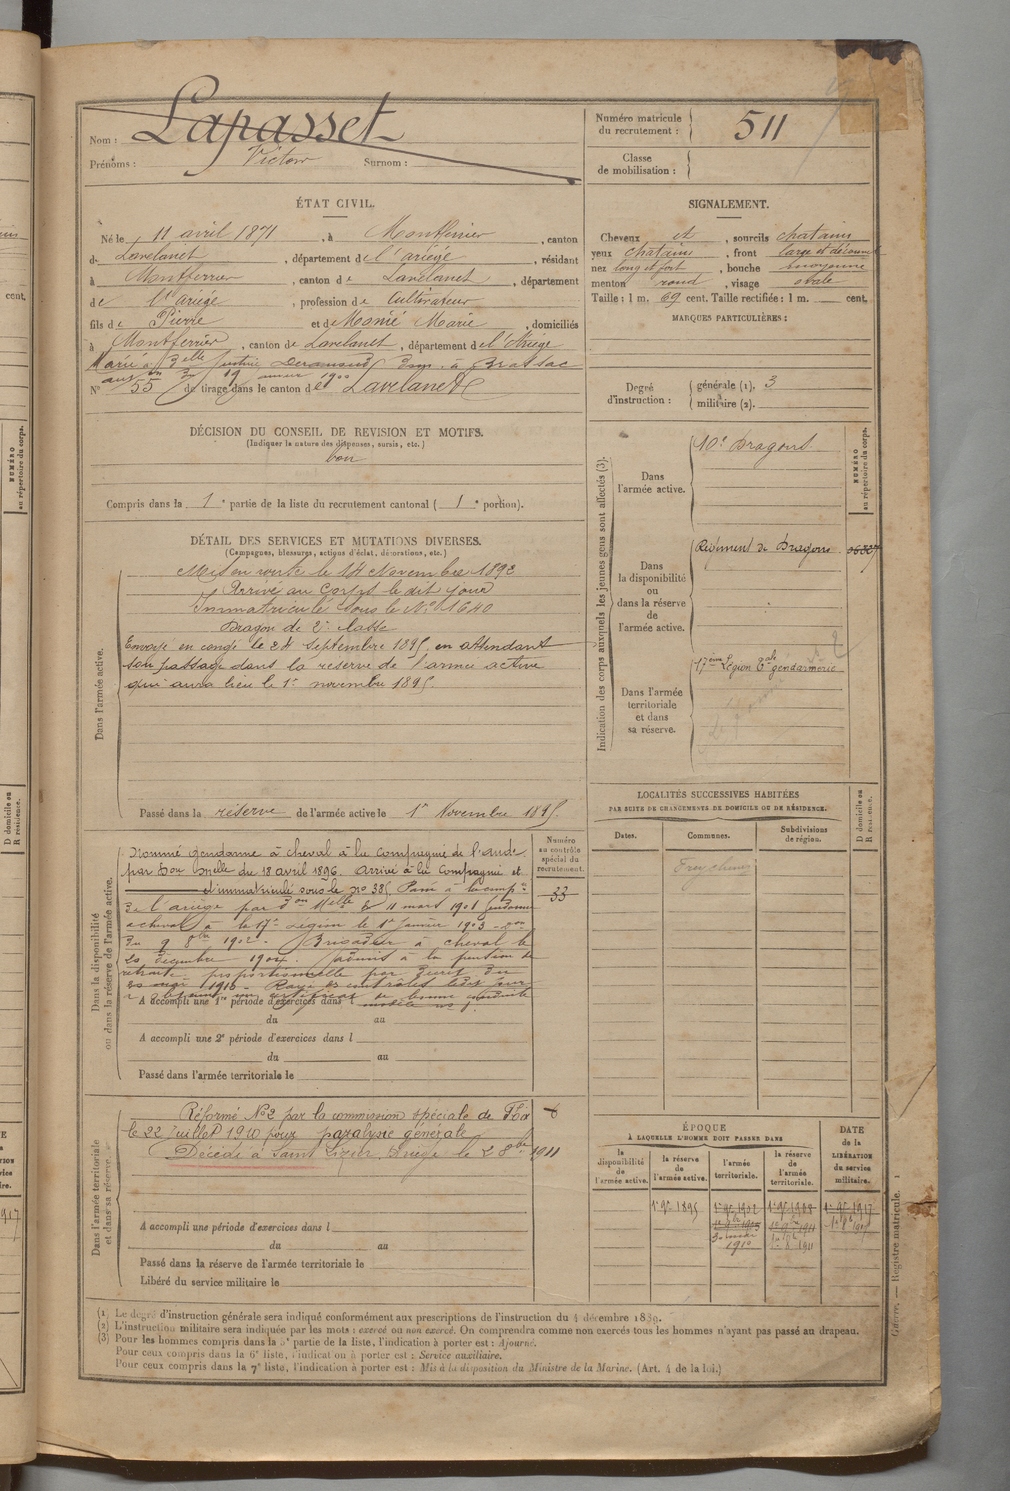 Nom : Lapasset
Prénoms : Victor Surnom :
Numéro matricule
du recrutement : 511
Classe
de mobilisation :
ÉTAT CIVIL.
Né le 11 avril 1871, à Montferrier, canton
de Lavelanet, département de l'ariège, résidant
à Montferrier, canton de Lavelanet, département
de l'ariège, profession de Cultivateur
fils de Pierre et de Manié Marie, domiciliés
à Montferrier, canton de Lavelanet, département de l'Ariège
Marié à elle Justine dom. à Brassac
1900
N° 55 de tirage dans le canton de Lavelanet
SIGNALEMENT.
Cheveux et, sourcils chatains
yeux chatains, front large et découvert
nez long et fort, bouche moyenne
menton rond, visage ovale
Taille : 1 m. 69 cent. Taille rectifiée : 1 m. cent.
MARQUES PARTICULIÈRES :
Degré
d'instruction :
générale (1). 3
militaire (2).
DÉCISION DU CONSEIL DE REVISION ET MOTIFS.
(Indiquer la nature des dispenses, sursis, etc.)
bon
Compris dans la 1e partie de la liste du recrutement cantonal ( 1e portion).
DÉTAIL DES SERVICES ET MUTATIONS DIVERSES.
(Campagnes, blessures, actions d'éclat, décorations, etc.)
Dans l'armée active.
Mis en route le 14 Novembre 1892
Arrivé au Corps le dit jour
Immatriculé sous le N° 1640
Dragon de 2e classe
Envoyé en congé le 24 Septembre 1895, en attendant
son passage dans la réserve de l'armée active
qui aura lieu le 1er novembre 1895.
Passé dans la réserve de l'armée active le 1er Novembre 1895
Indication des corps auxquels les jeunes gens sont affectés (3).
NUMÉRO
au répertoire du corps.
Dans
l'armée active.
10e Dragons
Dans
la disponibilité
ou
dans la réserve
de
l'armée active.
Régiment de Dragons
Dans l'armée
territoriale
et dans
sa réserve.
17ème Légion gendarmerie
Dans la disponibilité
ou dans la réserve de l'armée active.
Numéro
au contrôle
spécial du
recrutement.
33
Nommé gendarme à cheval à la compagnie de l'aude
par Don Melle du 18 avril 1896. arrivé à la compagnie et
immatriculé sous le n° 385 Passé à la comp ie
de l'ariège par Don Melle du 11 mars 1901 Gendarme
à cheval à la 17e Légion le 1er janvier 1903
du 9 8bre 1902. Brigadier à cheval le
20 décembre 1904. admis à la pension de
retraite proportionnelle par décret du
1910 - Rayé des contrôles
certificat de bonne conduite
A accompli une 1re période d'exercices dans
du au
A accompli une 2e période d'exercices dans l
du au
Passé dans l'armée territoriale le
LOCALITÉS SUCCESSIVES HABITÉES
PAR SUITE DE CHANGEMENTS DE DOMICILE OU DE RÉSIDENCE.
Dates. Communes. Subdivisions
de région.
D domicile ou
R résidence.
Dans l'armée territoriale
et dans sa réserve.
Réformé N°2 par la commission spéciale de Foix
le 22 Juillet 1910 pour paralysie générale
Décédé à Saint Lizier. Ariège le 2 8bre 1911
A accompli une période d'exercices dans l
du au
Passé dans la réserve de l'armée territoriale le
Libéré du service militaire le
ÉPOQUE
À LAQUELLE L'HOMME DOIT PASSER DANS
la
disponibilité
de
l'armée active.
la réserve
de
l'armée active.
l'armée
territoriale.
la réserve
de
l'armée
territoriale.
DATE
de la
LIBÉRATION
du service
militaire.
1er 9bre 1895
1910
1911
1er 9bre 1917
(1) Le degré d'instruction générale sera indiqué conformément aux prescriptions de l'instruction du 4 décembre 1889.
(2) L'instruction militaire sera indiquée par les mots : exercé ou non exercé. On comprendra comme non exercés tous les hommes n'ayant pas passé au drapeau.
(3) Pour les hommes compris dans la 5e partie de la liste, l'indication à porter est : Ajourné.
Pour ceux compris dans la 6e liste, l'indication à porter est : Service auxiliaire.
Pour ceux compris dans la 7e liste, l'indication à porter est : Mis à la disposition du Ministre de la Marine. (Art. 4 de la loi.)
Guerre. — Registre matricule. 1